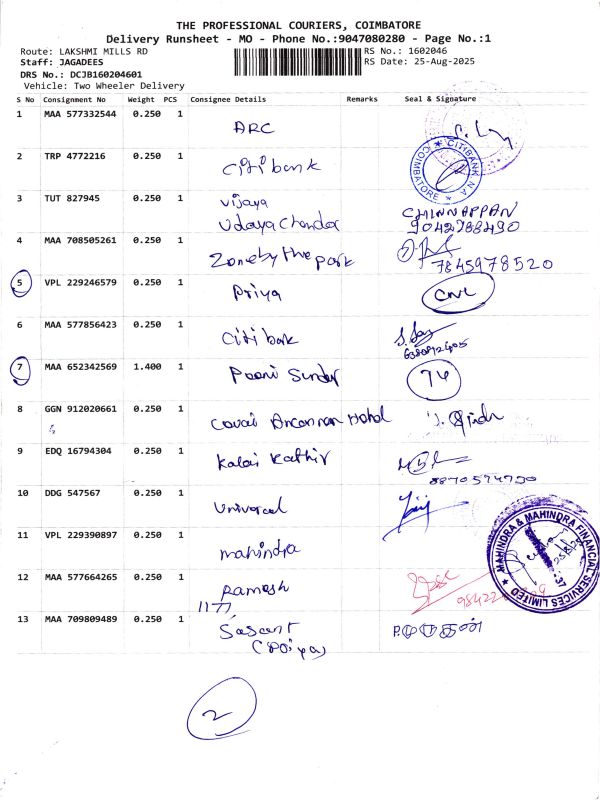 THE PROFESSIONAL COURIERS, COIMBATORE
Delivery Runsheet - MO - Phone No.:9047080280 - Page No.:1
Route: LAKSHMI MILLS RD RS No.: 1602046
Staff: JAGADEES RS Date: 25-Aug-2025
DRS No.: DCJB160204601
Vehicle: Two Wheeler Delivery
S No Consignment No Weight PCS Consignee Details Remarks Seal & Signature
1 MAA 577332544 0.250 1 ARC
2 TRP 4772216 0.250 1 Citibank
CITIBANK N.A. COIMBATORE
3 TUT 827945 0.250 1 Vijaya
Udaya Chandar CHINNAPPAN
9042788490
4 MAA 708505261 0.250 1 Zonebythe park
7845978520
5 VPL 229246579 0.250 1 Priya CNL
6 MAA 577856423 0.250 1 Citi bank
7 MAA 652342569 1.400 1
8 GGN 912020661 0.250 1
9 EDQ 16794304 0.250 1 Kalai Kathir
10 DDG 547567 0.250 1 Universal
11 VPL 229390897 0.250 1 mahindra
MAHINDRA & MAHINDRA FINANCIAL SERVICES LIMITED
12 MAA 577664265 0.250 1 Ramesh
1177
13 MAA 709809489 0.250 1 P.முருகன்
2